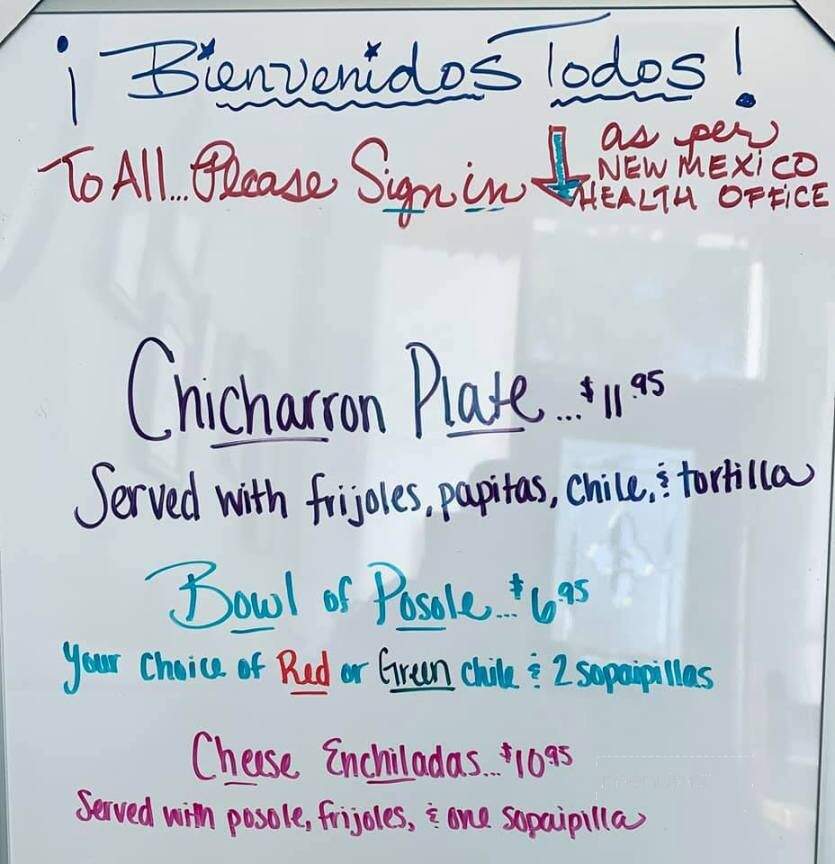 ¡Bienvenidos Todos!
To All... Please Sign in
as per
NEW MEXICO
HEALTH OFFICE
Chicharron Plate... $11.95
Served with frijoles, papitas, chile, & tortilla
Bowl of Posole... $6.95
Your choice of Red or Green chile & 2 sopaipillas
Cheese Enchiladas... $10.95
Served with posole, frijoles, & one sopaipilla